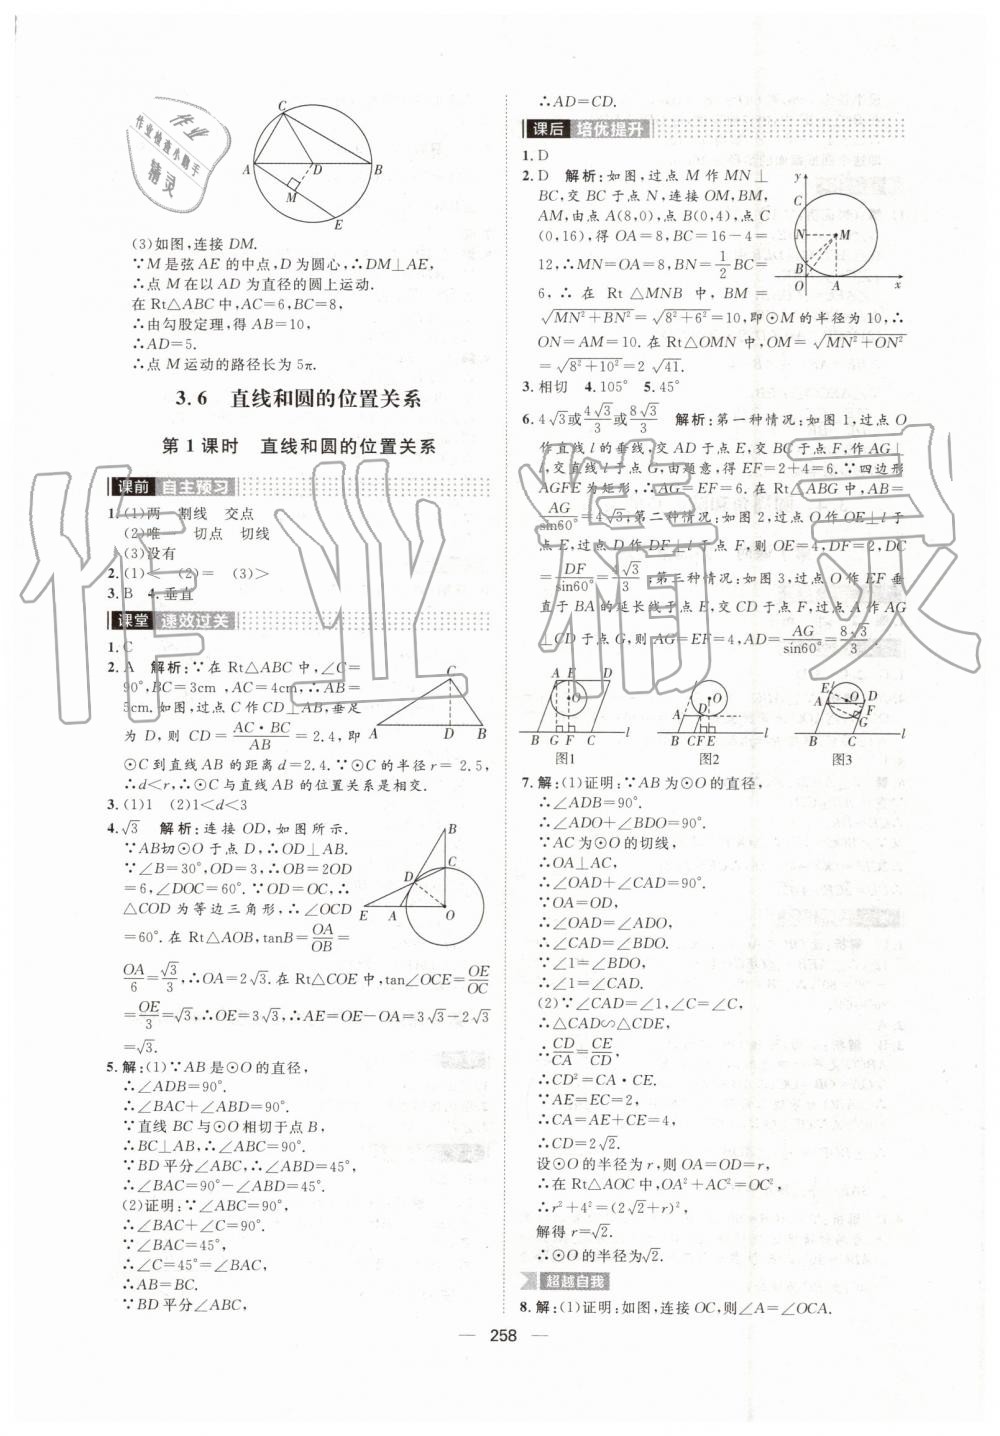 作业
作业检查小助手
精灵
C
A
D
B
M
E
(3)如图,连接 DM.
∵M 是弦 AE 的中点,D 为圆心,∴DM⊥AE,
∴点 M 在以 AD 为直径的圆上运动.
在 Rt△ABC 中,AC=6,BC=8,
∴由勾股定理,得 AB=10,
∴AD=5.
∴点 M 运动的路径长为 5π.
3.6 直线和圆的位置关系
第 1 课时 直线和圆的位置关系
课前 自主预习
1.(1)两 割线 交点
(2)唯一 切点 切线
(3)没有
2.(1)< (2)= (3)>
3.B 4.垂直
课堂 速效过关
1.C
2.A 解析:∵在 Rt△ABC 中,∠C=
90°,BC=3cm,AC=4cm,∴AB=
5cm.如图,过点 C 作 CD⊥AB,垂足
为 D,则 CD=AC·BC/AB=2.4,即
⊙C 到直线 AB 的距离 d=2.4.∵⊙C 的半径 r=2.5,
∴d<r,∴⊙C 与直线 AB 的位置关系是相交.
C
A D B
3.(1)1 (2)1<d<3
4.√3 解析:连接 OD,如图所示.
∵AB切⊙O 于点 D,∴OD⊥AB.
∵∠B=30°,OD=3,∴OB=2OD
=6,∠DOC=60°.∵OD=OC,∴
△COD 为等边三角形,∴∠OCD
=60°.在 Rt△AOB,tanB=OA/OB=
OA/6=√3/3,∴OA=2√3.在 Rt△COE 中,tan∠OCE=OE/OC
=OE/3=√3,∴OE=3√3,∴AE=OE-OA=3√3-2√3
=√3.
B
C
D
E A O
5.解:(1)∵AB 是⊙O 的直径,
∴∠ADB=90°.
∴∠BAC+∠ABD=90°.
∵直线 BC 与⊙O 相切于点 B,
∴BC⊥AB,∴∠ABC=90°.
∵BD 平分∠ABC,∴∠ABD=45°,
∴∠BAC=90°-∠ABD=45°.
(2)证明:∵∠ABC=90°,
∴∠BAC+∠C=90°.
∵∠BAC=45°,
∴∠C=45°=∠BAC,
∴AB=BC.
∵BD 平分∠ABC,
∴AD=CD.
课后 培优提升
1.D
2.D 解析:如图,过点 M 作 MN⊥
BC,交 BC 于点 N,连接 OM,BM,
AM,由点 A(8,0),点 B(0,4),点 C
(0,16),得 OA=8,BC=16-4=
12,∴MN=OA=8,BN=1/2BC=
6,∴在 Rt△MNB 中,BM=
√(MN²+BN²)=√(8²+6²)=10,即⊙M 的半径为 10,∴
ON=AM=10.在 Rt△OMN 中,OM=√(MN²+ON²)
=√(8²+10²)=2√41.
y
C
N
M
B
O
A
x
3.相切 4.105° 5.45°
6.4√3或4√3/3或8√3/3 解析:第一种情况:如图 1,过点 O
作直线 l 的垂线,交 AD 于点 E,交 BC 于点 F,作 AG⊥
l,交直线 l 于点 G,由题意,得 EF=2+4=6.∵四边形
AGFE 为矩形,∴AG=EF=6.在 Rt△ABG 中,AB=
AG/sin60°=4√3;第二种情况:如图 2,过点 O 作 OE⊥l 于
点 E,过点 D 作 DF⊥l 于点 F,则 OE=4,DF=2,DC
=DF/sin60°=4√3/3;第三种情况:如图 3,过点 O 作 EF 垂
直于 BA 的延长线于点 E,交 CD 于点 F,过点 A 作 AG
⊥CD 于点 G,则 AG=EF=4,AD=AG/sin60°=8√3/3.
A E D
O
B G F C l
图1
O
A D
B C F E l
图2
E O D
A F
G
B C l
图3
7.解:(1)证明:∵AB 为⊙O 的直径,
∴∠ADB=90°.
∴∠ADO+∠BDO=90°.
∵AC 为⊙O 的切线,
∴OA⊥AC,
∴∠OAD+∠CAD=90°.
∵OA=OD,
∴∠OAD=∠ADO,
∴∠CAD=∠BDO.
∵∠1=∠BDO,
∴∠1=∠CAD.
(2)∵∠CAD=∠1,∠C=∠C,
∴△CAD∽△CDE,
∴CD/CA=CE/CD,
∴CD²=CA·CE.
∵AE=EC=2,
∴CA=AE+CE=4,
∴CD=2√2.
设⊙O 的半径为 r,则 OA=OD=r,
∴在 Rt△AOC 中,OA²+AC²=OC²,
∴r²+4²=(2√2+r)²,
解得 r=√2.
∴⊙O 的半径为√2.
超越自我
8.解:(1)证明:如图,连接 OC,则∠A=∠OCA.
— 258 —
作业精灵